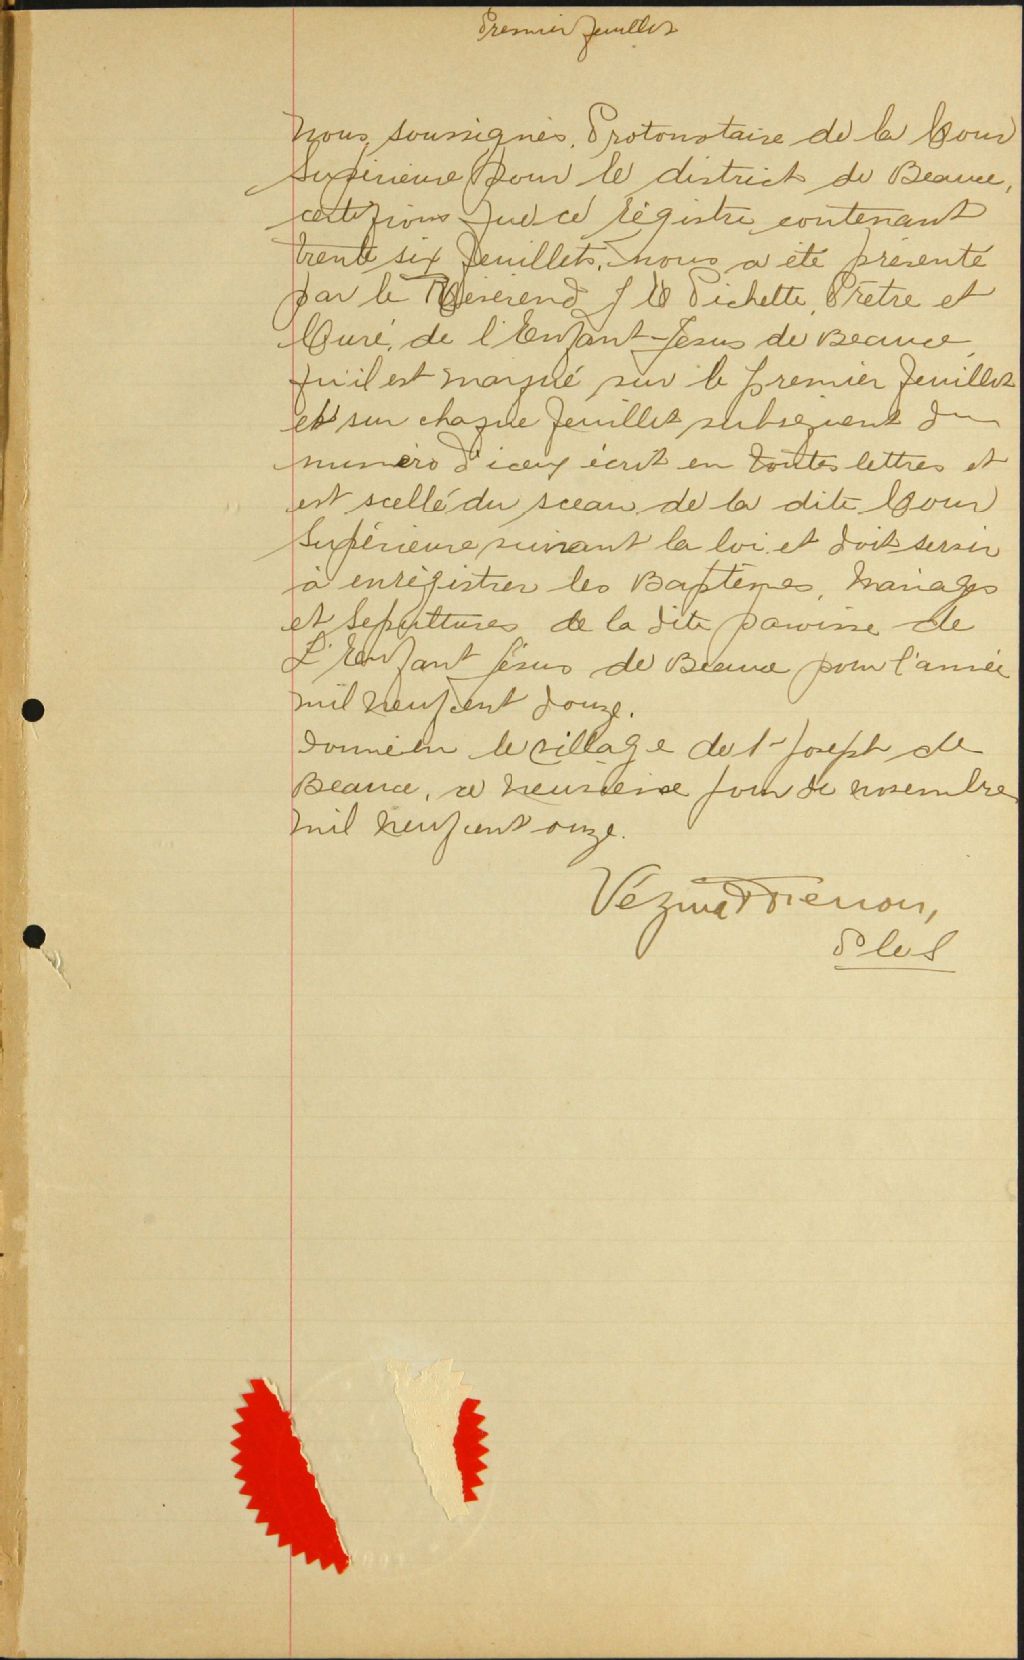 Premier feuillet
Nous, soussignés, Protonotaire de la Cour
Supérieure pour le district de Beauce,
certifions que ce régistre contenant
trente six feuillets, nous a été présenté
par le Révérend J Pichette, Prêtre et
Curé, de l'Enfant-Jésus de Beauce,
qu'il est marqué sur le premier feuillet
et sur chaque feuillet subséquent du
numéro d'iceux écrit en toutes lettres et
est scellé du sceau de la dite Cour
Supérieure suivant la loi et doit servir
à enrégistrer les Baptêmes, Mariages
et Sepultures de la dite paroisse de
L'Enfant Jésus de Beauce pour l'année
mil neuf cent douze.
Donné en le village de St Joseph de
Beauce, ce neuvième jour de novembre
mil neuf cent onze.
Vézina
P C S